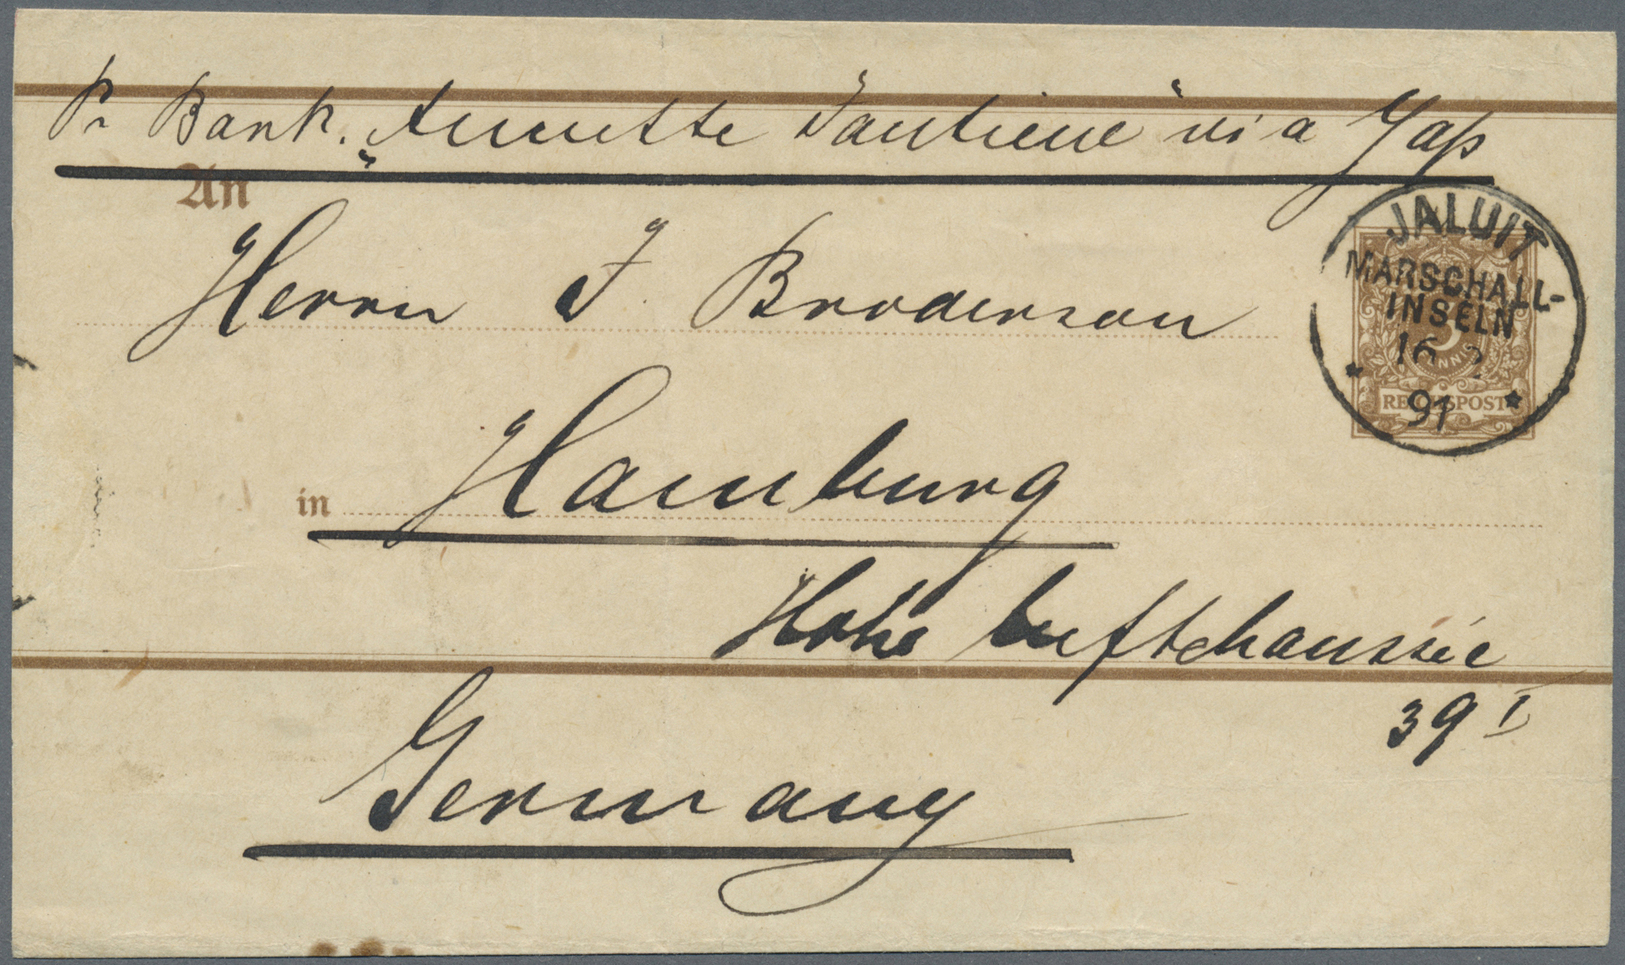 Pr Bark. „Annette Fantieue“ via Yap
An
Herrn J. Brodersen
JALUIT
MARSCHALL-
INSELN
16 2
91
3
PFENNIG
REICHSPOST
in Hamburg
Hohe Luftchaussée
39 I
Germany